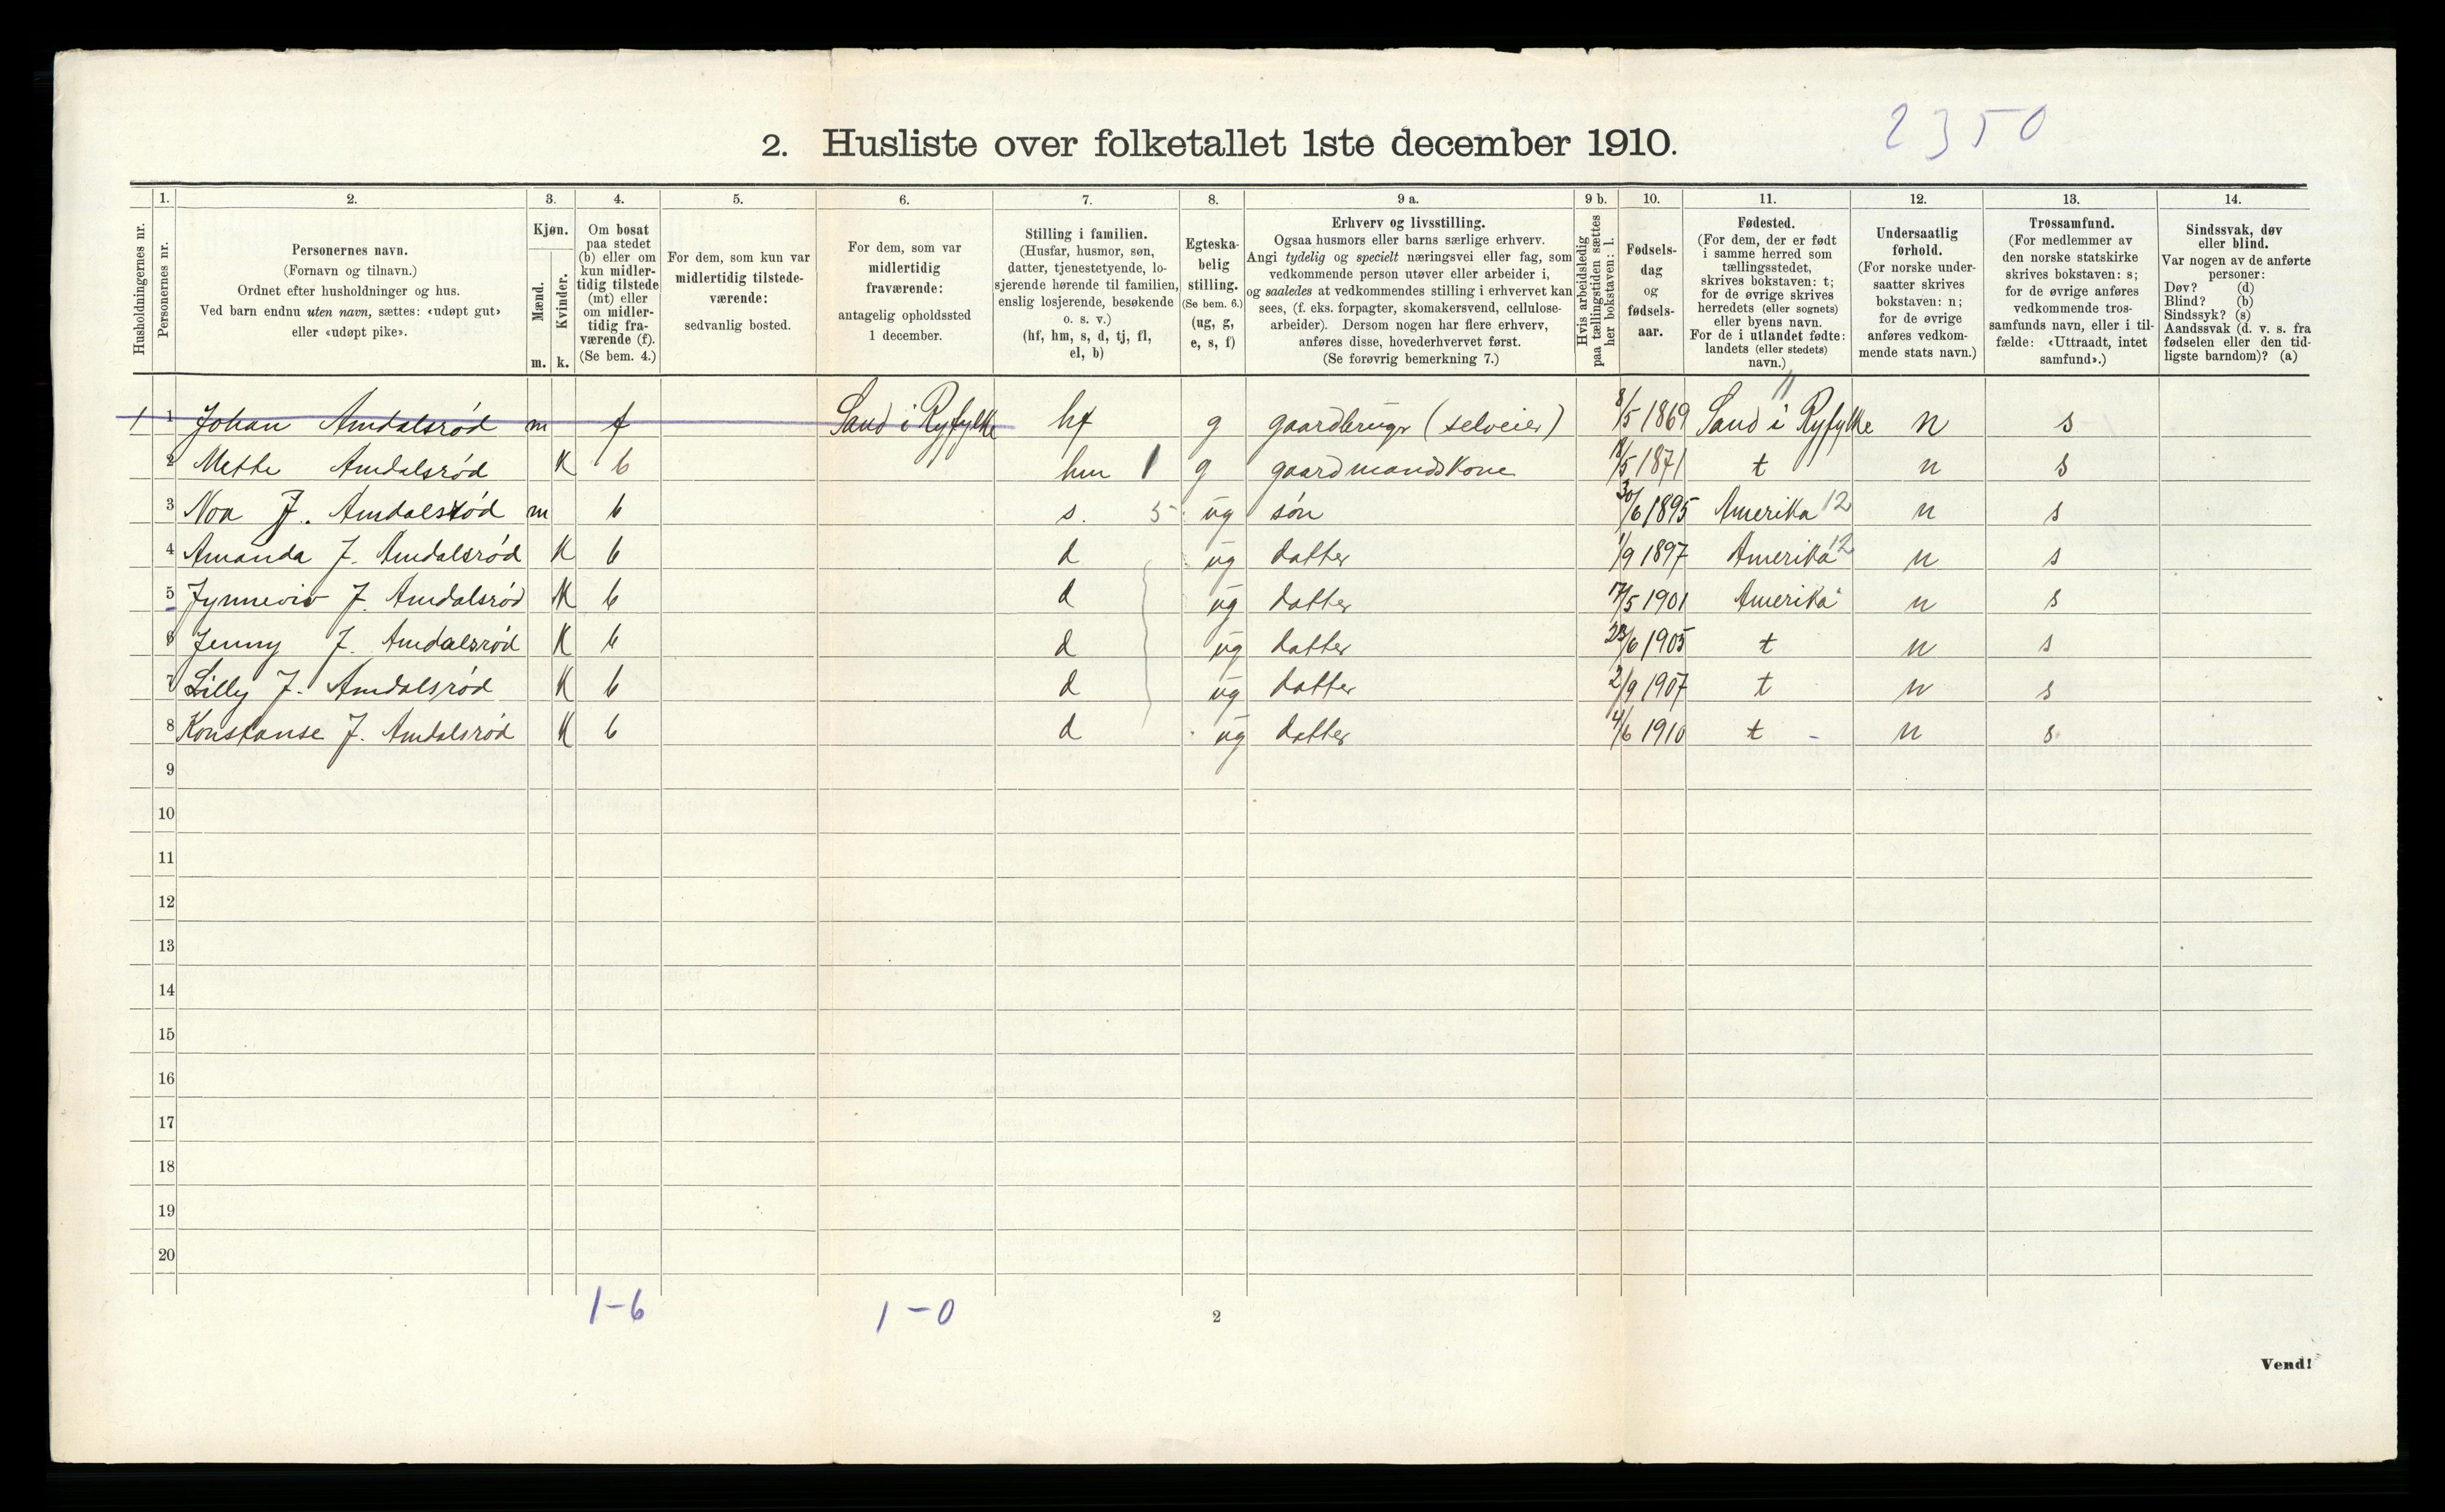 2350
2. Husliste over folketallet 1ste december 1910.
Husholdningernes nr.
1. Personernes nr.
2. Personernes navn.
(Fornavn og tilnavn.)
Ordnet efter husholdninger og hus.
Ved barn endnu uten navn, sættes: «udøpt gut»
eller «udøpt pike».
3. Kjøn.
Mænd. m.
Kvinder. k.
4. Om bosat
paa stedet
(b) eller om
kun midler-
tidig tilstede
(mt) eller
om midler-
tidig fra-
værende (f).
(Se bem. 4.)
5. For dem, som kun var
midlertidig tilstede-
værende:
sedvanlig bosted.
6. For dem, som var
midlertidig
fraværende:
antagelig opholdssted
1 december.
7. Stilling i familien.
(Husfar, husmor, søn,
datter, tjenestetyende, lo-
sjerende hørende til familien,
enslig losjerende, besøkende
o. s. v.)
(hf, hm, s, d, tj, fl,
el, b)
8. Egteska-
belig
stilling.
(Se bem. 6.)
(ug, g,
e, s, f)
9 a. Erhverv og livsstilling.
Ogsaa husmors eller barns særlige erhverv.
Angi tydelig og specielt næringsvei eller fag, som
vedkommende person utøver eller arbeider i,
og saaledes at vedkommendes stilling i erhvervet kan
sees, (f. eks. forpagter, skomakersvend, cellulose-
arbeider). Dersom nogen har flere erhverv,
anføres disse, hovederhvervet først.
(Se forøvrig bemerkning 7.)
9 b. Hvis arbeidsledig
paa tællingstiden sættes
her bokstaven: l.
10. Fødsels-
dag
og
fødsels-
aar.
11. Fødested.
(For dem, der er født
i samme herred som
tællingsstedet,
skrives bokstaven: t;
for de øvrige skrives
herredets (eller sognets)
eller byens navn.
For de i utlandet fødte:
landets (eller stedets)
navn.)
12. Undersaatlig
forhold.
(For norske under-
saatter skrives
bokstaven: n;
for de øvrige
anføres vedkom-
mende stats navn.)
13. Trossamfund.
(For medlemmer av
den norske statskirke
skrives bokstaven: s;
for de øvrige anføres
vedkommende tros-
samfunds navn, eller i til-
fælde: «Uttraadt, intet
samfund».)
14. Sindssvak, døv
eller blind.
Var nogen av de anførte
personer:
Døv? (d)
Blind? (b)
Sindssyk? (s)
Aandssvak (d. v. s. fra
fødselen eller den tid-
ligste barndom)? (a)
11
1 1 Johan Amdalsrød m f Sand i Ryfylke hf g gaardbruger (selveier) 8/5 1869 Sand i Ryfylke n s
2 Mette Amdalsrød K b hm 1 g gaardmandskone 18/5 1871 t n s
3 Noa J. Amdalsrød m b s. 5 ug søn 30/6 1895 Amerika 12 n s
4 Amanda J. Amdalsrød K b d ug datter 1/9 1897 Amerika 12 n s
5 Jynneviv J. Amdalsrød K b d ug datter 17/5 1901 Amerika n s
6 Jenny J. Amdalsrød K b d ug datter 23/6 1905 t n s
7 Lilly J. Amdalsrød K b d ug datter 2/9 1907 t n s
8 Konstanse J. Amdalsrød K b d ug datter 4/6 1910 t - n s
9
10
11
12
13
14
15
16
17
18
19
20
1-6 1-0
2
Vend!